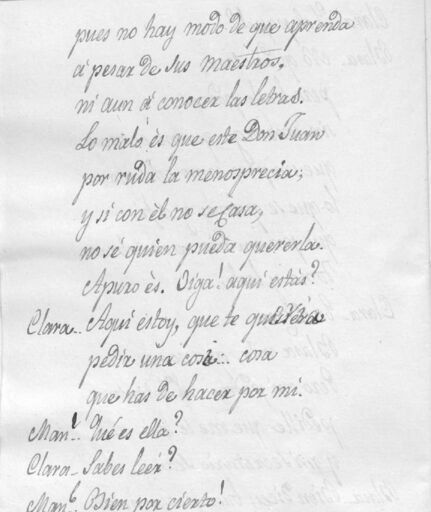 pues no hay modo de que aprenda
á pesar de sus maestros,
ni aun á conocer las letras.
Lo malo és que este Don Juan
por ruda la menosprecia;
y si con él no se Casa,
no sé quien pueda quererla.
Apuro és. Oiga! aqui estás?
Clara.. Aqui estoy, que te queria
pedir una cosa... cosa
que has de hacer por mi.
Man.l Qué es ella?
Clara- Sabes leer?
Man.l Bien por cierto!